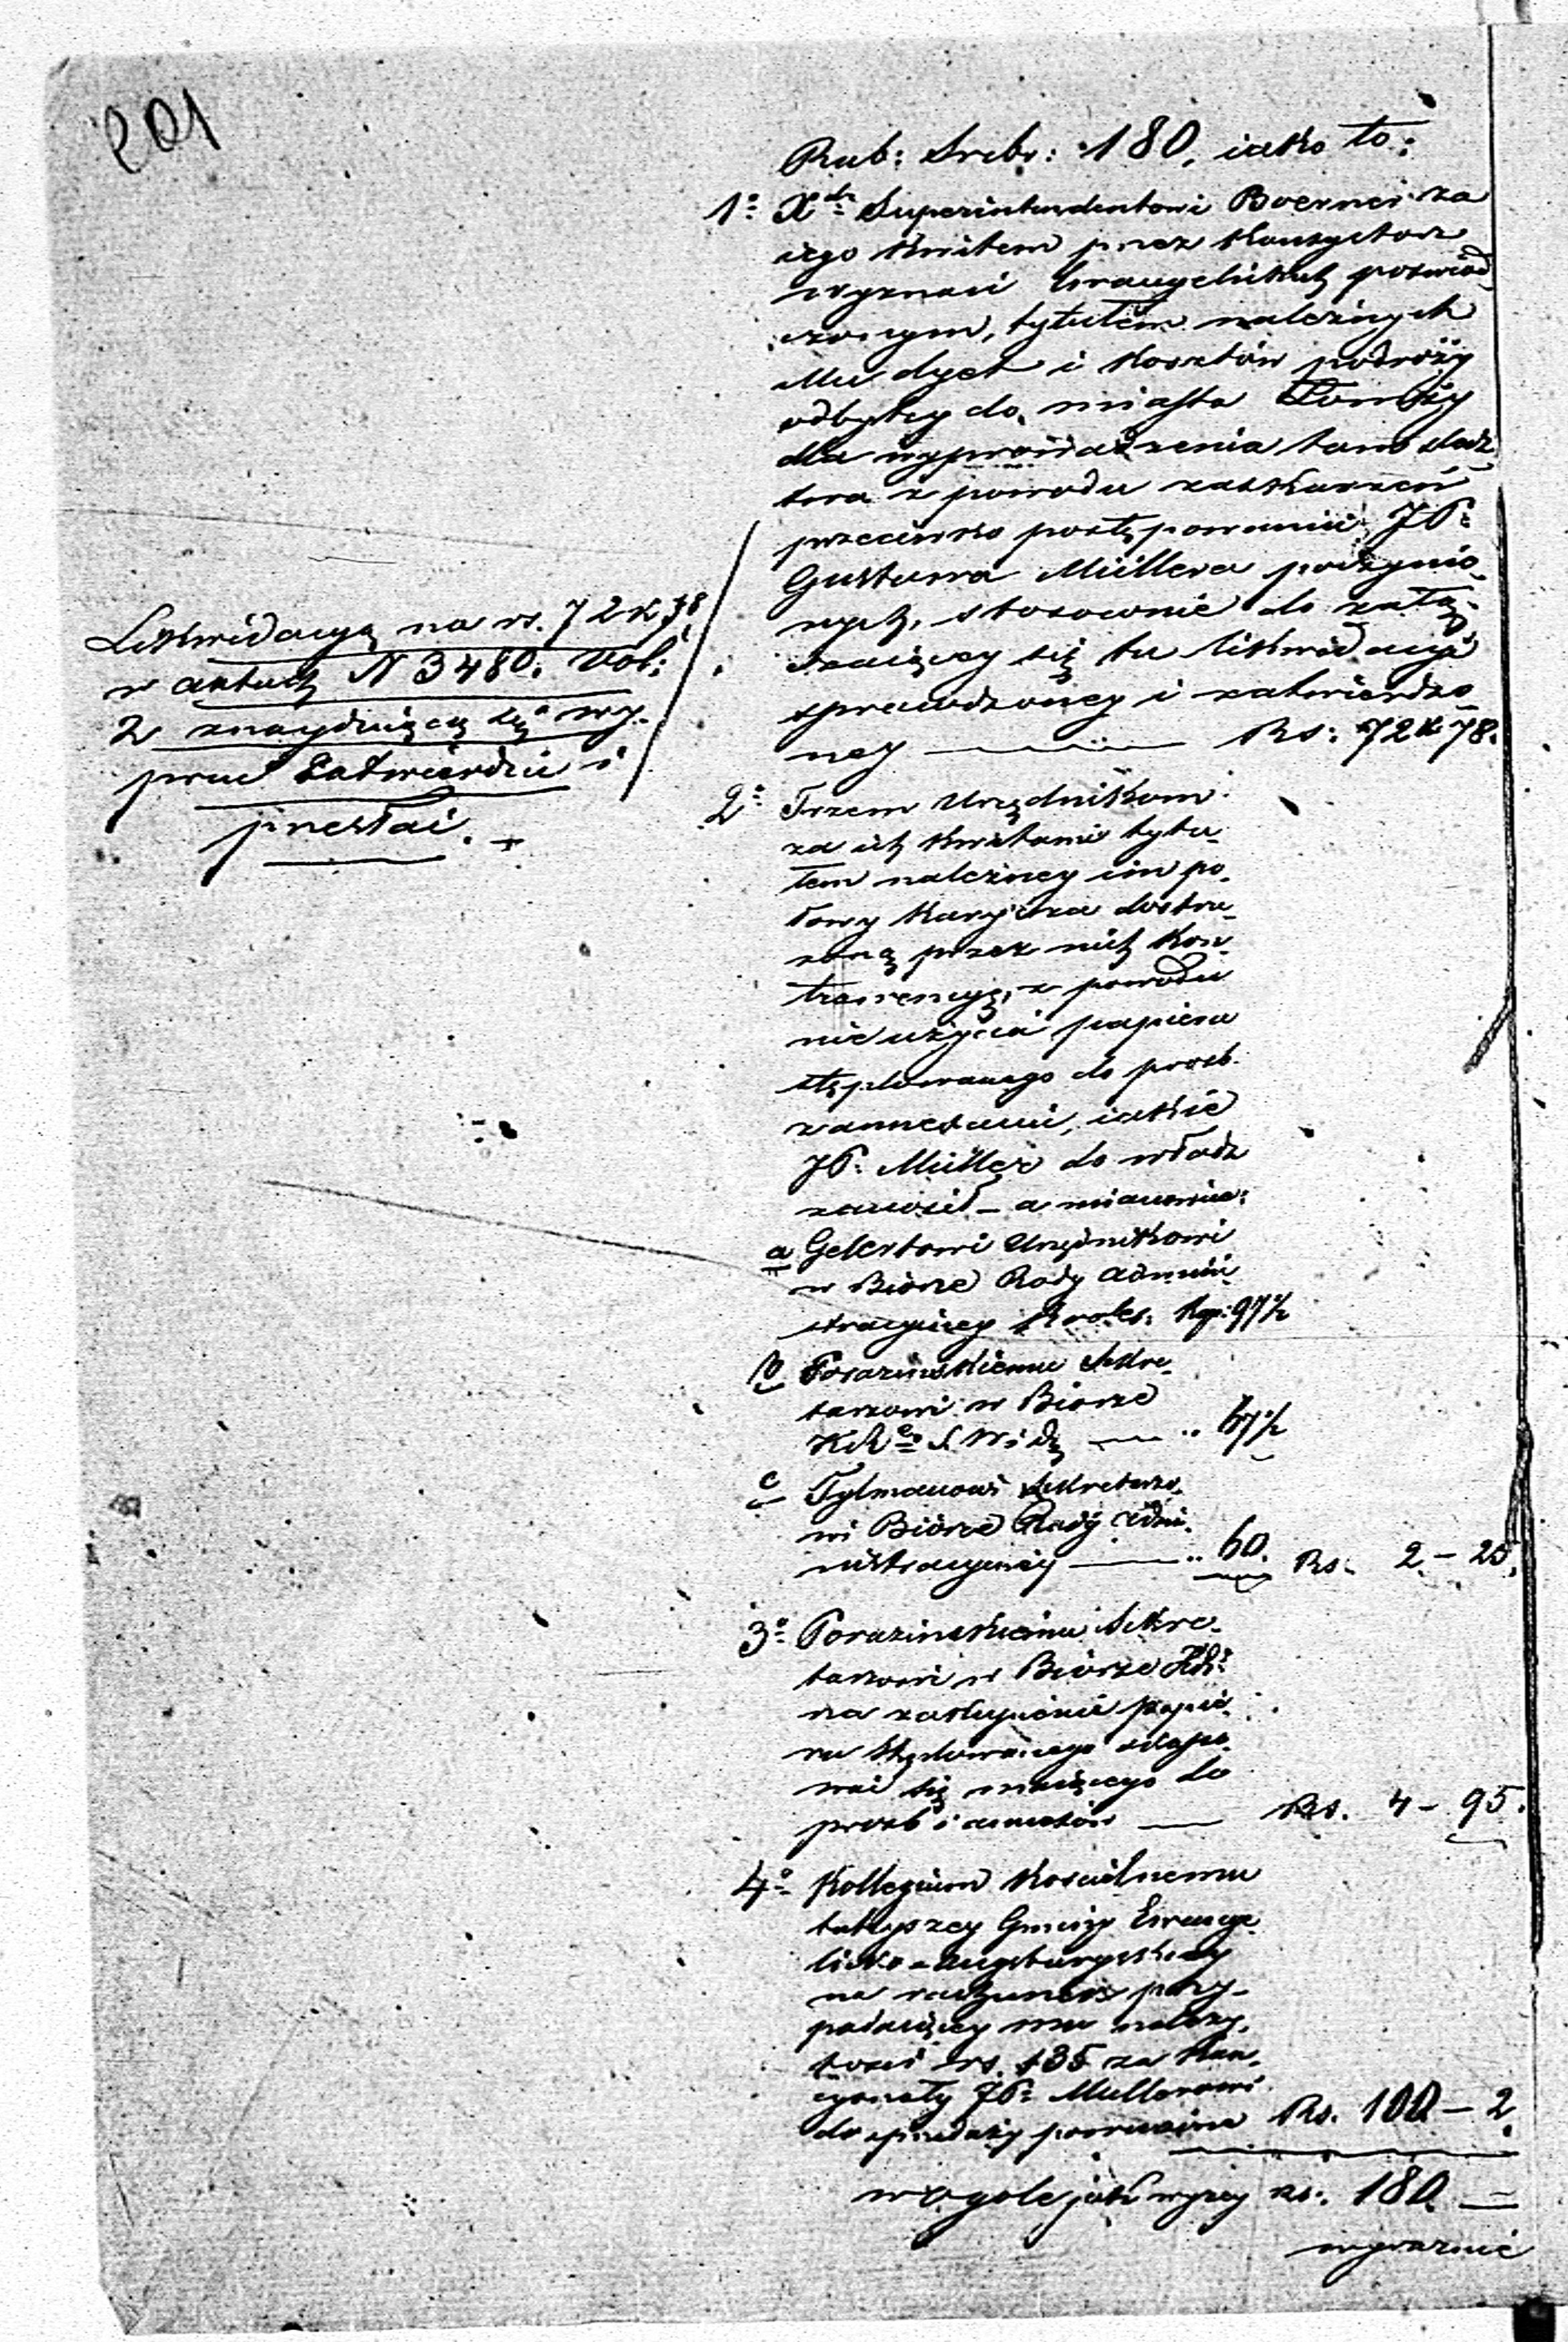 201
Rub: Srebr: 180, iako to:
1o Xdu Superintendentowi Boerner za
iego kwitem przez Konsystorz
wyznań Ewangelickich poświad
czonym, tytułem należnych
Mu dyet i kosztów podróży
odbytey do miasta Łomży
dla wyprowadzenia tam śledz
twa z powodu zaskarżeń
przeciwko postępowaniu JP:
Gustawa Müllera poczynio
nych, stosownie do załą-
czaiącey się tu likwidacyi
sprawdzoney i zatwierdzo
ney Rs: 72 k 78.
Likwidacyą na rs. 72 k 78
w aktach N 3480. Vol:
2 znayduiącą się wy-
prac Zatwierdzić i
przesłać.
2o Trzem Urzędnikom
za ich kwitami tytu
łem należney im po
łowy kary za dostrze
żoną przez nich kon
trawencyą, z powodu
nieużycia papieru
stęplowanego do prośb
z annexami, iakie
JP: Müller do władz
zanosił – a mianowicie:
a Gelertowi Urzędnikowi
w Biórze Rady Admini
stracyiney Króles: kop: 97½
b Porazińskiemu Sekre
tarzowi w Biorze
KR S. W i D .. 67½
c Tylmanowi Sekretarzo
wi Biórze Rady Admi
nistracyiney .. 60. Rs. 2 – 25.
3o Porazińskiemu Sekre
tarzowi w Biórze
na zakupienie papie
ru stęplowanego
wać się maiącego do
prośb i annexów Rs. 4 – 95.
4o Kollegium Kościelnemu
tutejszey Gminy Ewange
licko-Augsburgskiey
na rachunek przy-
padaiącey mu należy
tości rs. 135 za kan
cyonały JP: Mullerowi
do sprzedaży powierzone Rs. 100 – 2.
w ogole jak wyżey rs: 180 –
wyraźnie